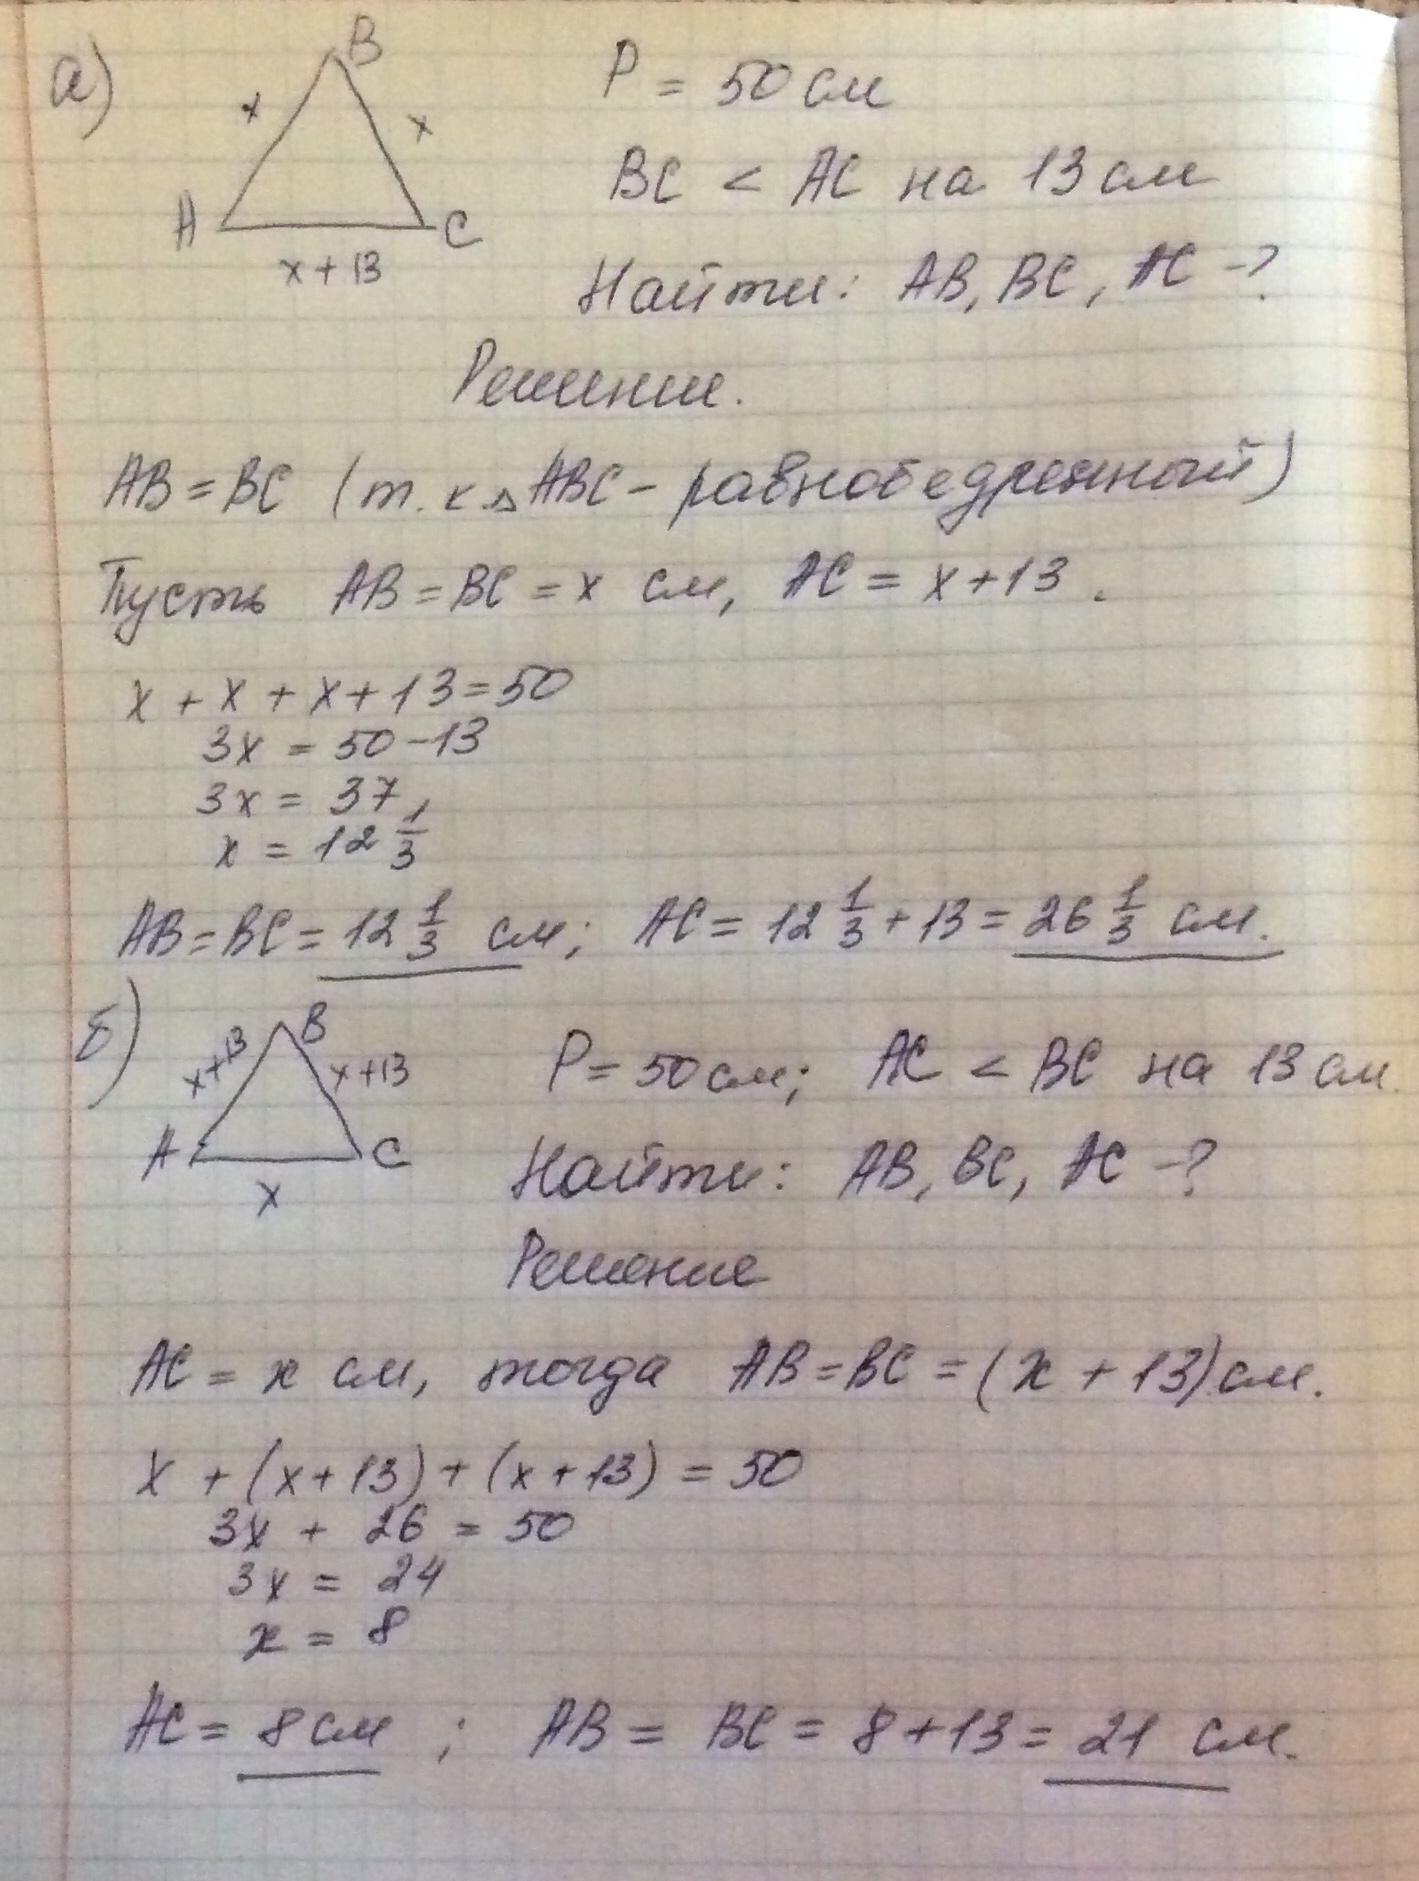 а)
B
x
x
A
C
x + 13
P = 50 см
BC < AC на 13 см
Найти: AB, BC, AC - ?
Решение.
AB = BC (т. к △ABC - равнобедренный)
Пусть AB = BC = x см, AC = x + 13.
x + x + x + 13 = 50
3x = 50 - 13
3x = 37
x = 12 1/3
AB = BC = 12 1/3 см; AC = 12 1/3 + 13 = 26 1/3 см.
б)
B
x + 13
x + 13
A
C
x
P = 50 см; AC < BC на 13 см.
Найти: AB, BC, AC - ?
Решение
AC = x см, тогда AB = BC = (x + 13) см.
x + (x + 13) + (x + 13) = 50
3x + 26 = 50
3x = 24
x = 8
AC = 8 см ; AB = BC = 8 + 13 = 21 см.